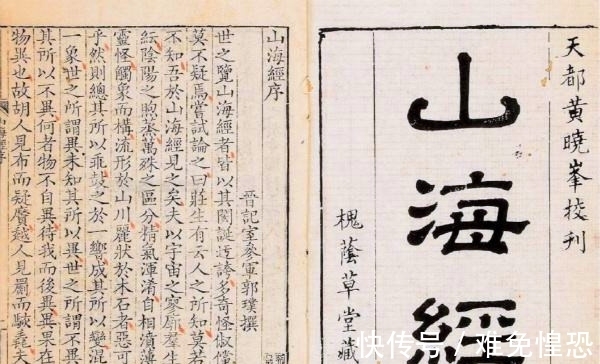 天都黃曉峯挍刊
山海經
槐蔭草堂藏
山海經序
晉記室參軍郭璞撰
世之覽山海經者皆以其閎誕迂誇多奇怪俶儻
莫不疑焉嘗試論之曰莊生有云人之所知莫若
不知吾於山海經見之矣夫以宇宙之寥廓羣生
紜陰陽之煦蒸萬殊之區分精氣渾淆自相濆薄
靈怪觸象而構流形於山川麗狀於木石者惡可
乎然則總其所以乖鼓之於一響成其所以變混
一象世之所謂異未知其所以異世之所謂不異
其所以不異何者物不自異待我而後異異果在
物異也故胡人見布而疑黂越人見罽而駭毳夫
快传号/难免惶恐